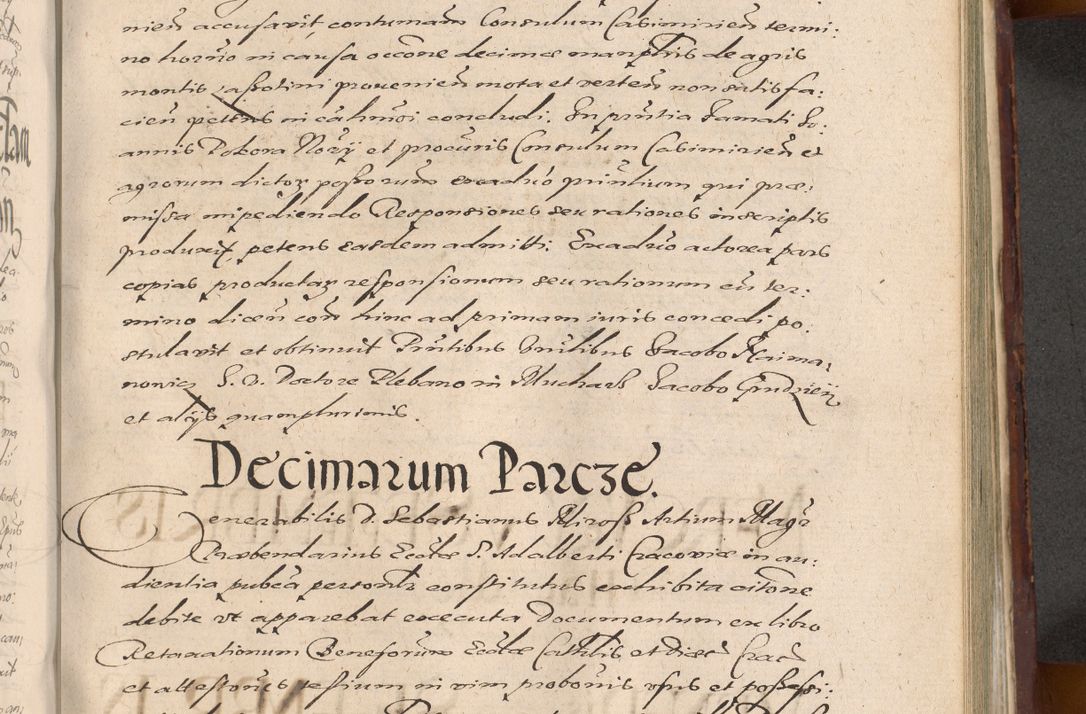 nien accusavit, contumam Consulum Casimirien termi:
no horno in causa occone decimæ manplris de agris
montis Lassotini provenien mota et verten non satisfa:
cien petens in ca hmoi concludi. In prntia Famati Jo:
annis Pobora Norij et procuris Consulum Casimirien et
agrorum dictor possorum exaduo prntium qui præ:
missa impediendo Responsiones seu rationes in scriptis
produxit petens easdem admitti. Exaduo actorea pars
copias productar responsionum seu rationum cu ter:
mino dicen con hinc ad primam iuris concedi po:
stulavit et obtinuit Prntibus Jacobo
nowicz S. D. Doctore Plebano in Jacobo
et alijs quamplurimis.
Decimarum Parcze.
Venerabilis D. Sebastianus Mirosz Artium Magr
Præbendarius Eccltæ S. Adalberti Cracoviæ in au:
dientia pubca personlr constitutus exhibita citone
debite vt apparebat executa Documentum ex libro
Retaxationum Beneforum Eccltæ Cathlis et Diæc Crac
et attestones testium in vim probonis vsus et possessi: